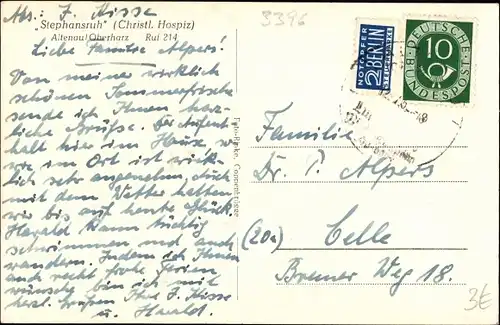 Abs: F. Kisse
Stephansruh" (Christl. Hospiz)
Altenau/Oberharz Ruf 214
Liebe Familie Alpers!
Von meiner wirklich
schönen Sommerfrische
sende ich Ihnen herz-
liche Grüße. Der Aufent-
halt hier im Hause, wie
im Ort ist wirklich
sehr angenehm, auch
mit dem Wetter hatten
wir bis auf heute Glück.
Harald kann tüchtig
schwimmen und auch
wandern. Indem ich Ihnen
auch recht frohe Ferien
wünsche bin ich mit
herzl. Grüßen Ihre F. Kisse
u. Harald.
3396
NOTOPFER
2 BERLIN
STEUERMARKE
DEUTSCHE
BUNDESPOST
10
Familie
Dr. P. Alpers
(20a) Celle
Bremer Weg 18.
3€